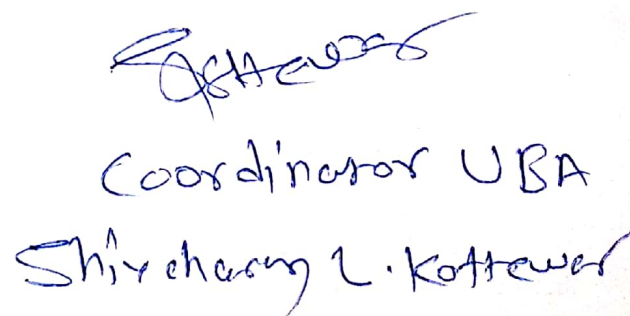 Coordinator UBA
Shivcharan L. Kottewar